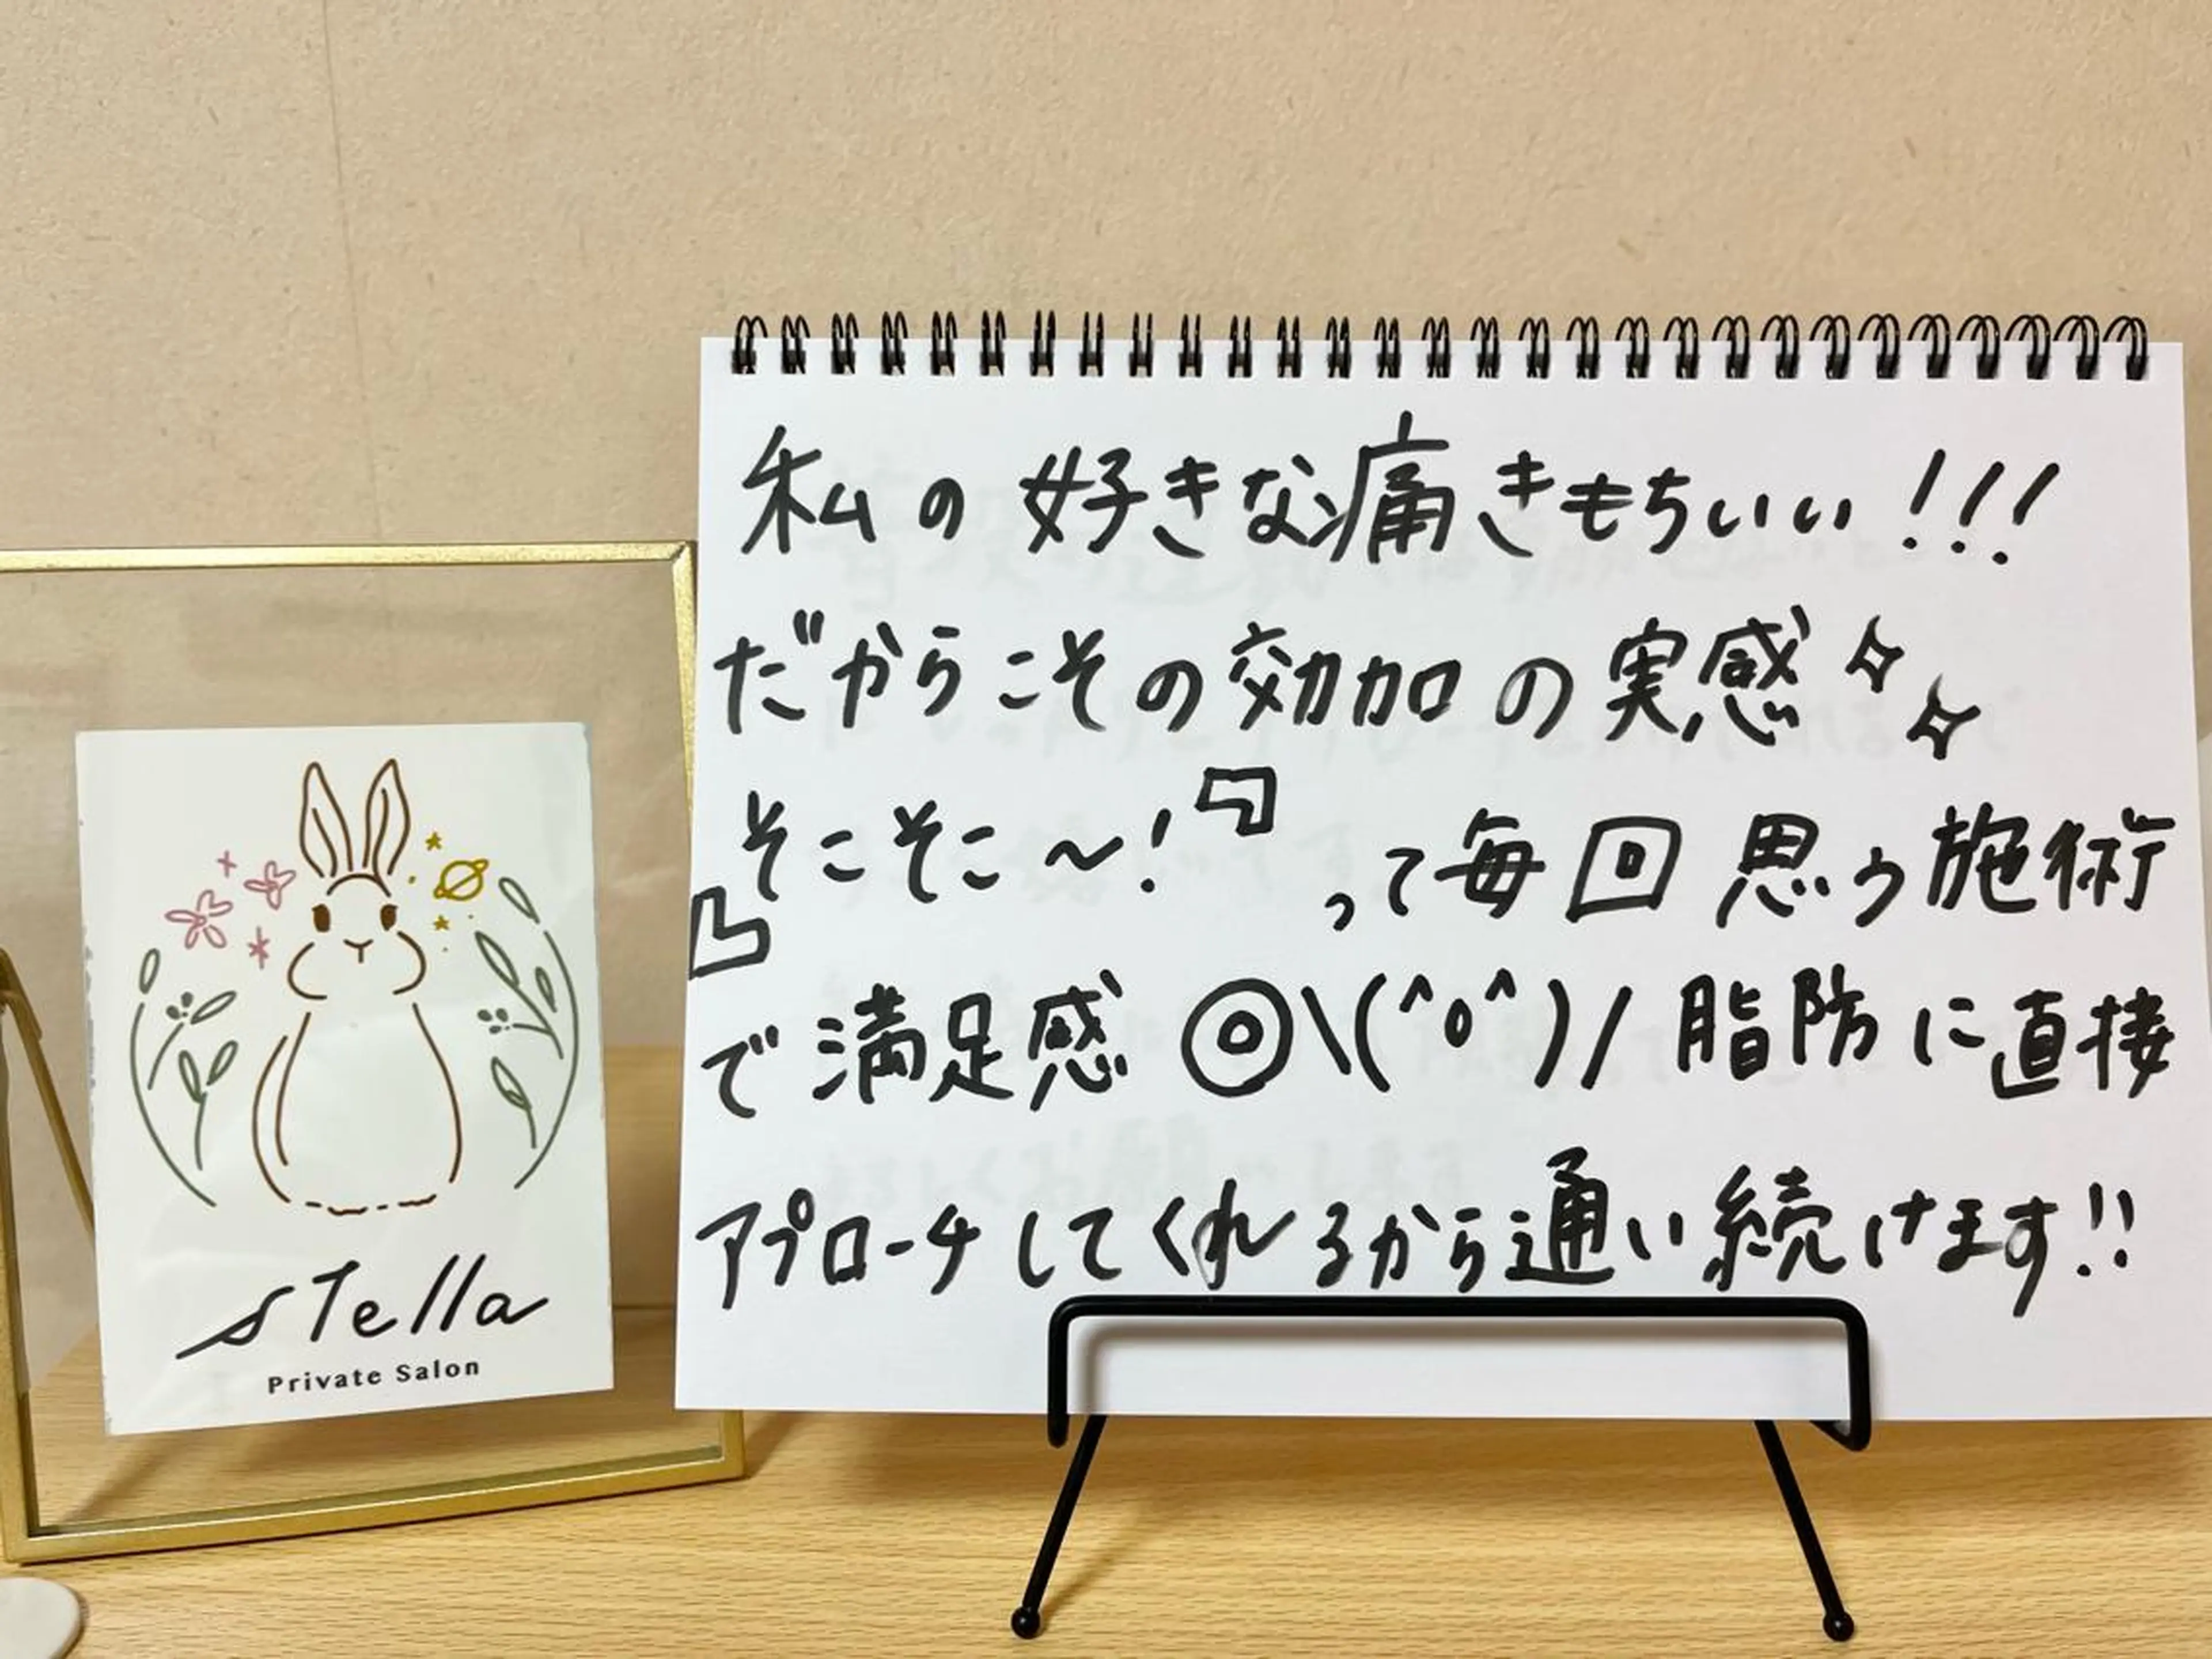 stella
Private Salon
私の好きな痛きもちいい!!!
だからこその効加の実感✧✧
『そこそこ〜!』って毎回思う施術
で満足感◎\(^o^)/脂肪に直接
アプローチしてくれるから通い続けます!!